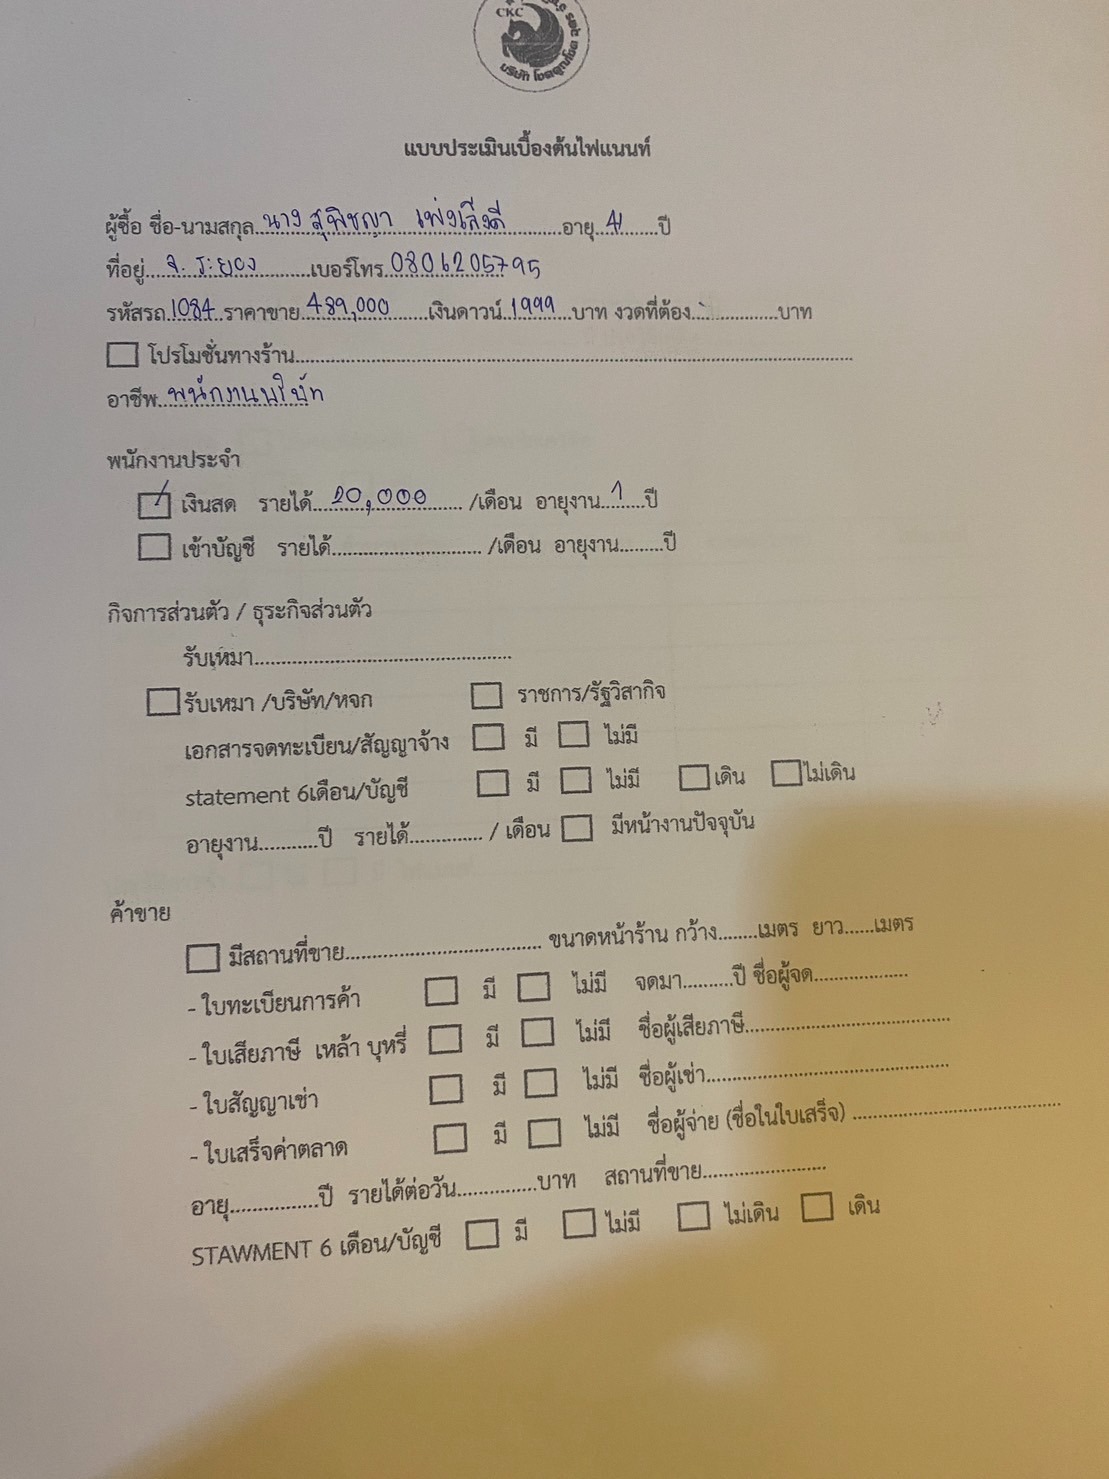 CKC
บริษัท โชคคูณโชค
แบบประเมินเบื้องต้นไฟแนนท์
ผู้ซื้อ ชื่อ-นามสกุล..นาง สุพิชญา เพ่งเล็งดี..........อายุ..41......ปี
ที่อยู่....จ. ระยอง..........เบอร์โทร.0806205795
รหัสรถ.1084..ราคาขาย.489,000.......เงินดาวน์.1999...บาท งวดที่ต้อง...............บาท
☐ โปรโมชั่นทางร้าน..........................................................................................
อาชีพ..พนักงานบริษัท
พนักงานประจำ
☑ เงินสด รายได้...20,000....... /เดือน อายุงาน..1.....ปี
☐ เข้าบัญชี รายได้............................... /เดือน อายุงาน.........ปี
กิจการส่วนตัว / ธุระกิจส่วนตัว
รับเหมา....................................................
☐ รับเหมา /บริษัท/หจก ☐ ราชการ/รัฐวิสากิจ
เอกสารจดทะเบียน/สัญญาจ้าง ☐ มี ☐ ไม่มี
statement 6เดือน/บัญชี ☐ มี ☐ ไม่มี ☐ เดิน ☐ ไม่เดิน
อายุงาน...........ปี รายได้............. / เดือน ☐ มีหน้างานปัจจุบัน
ค้าขาย
☐ มีสถานที่ขาย...................................... ขนาดหน้าร้าน กว้าง.......เมตร ยาว......เมตร
- ใบทะเบียนการค้า ☐ มี ☐ ไม่มี จดมา..........ปี ชื่อผู้จด..................
- ใบเสียภาษี เหล้า บุหรี่ ☐ มี ☐ ไม่มี ชื่อผู้เสียภาษี.......................................
- ใบสัญญาเช่า ☐ มี ☐ ไม่มี ชื่อผู้เช่า..............................................
- ใบเสร็จค่าตลาด ☐ มี ☐ ไม่มี ชื่อผู้จ่าย (ชื่อในใบเสร็จ) ........................................
อายุ.................ปี รายได้ต่อวัน...............บาท สถานที่ขาย.......................
STAWMENT 6 เดือน/บัญชี ☐ มี ☐ ไม่มี ☐ ไม่เดิน ☐ เดิน